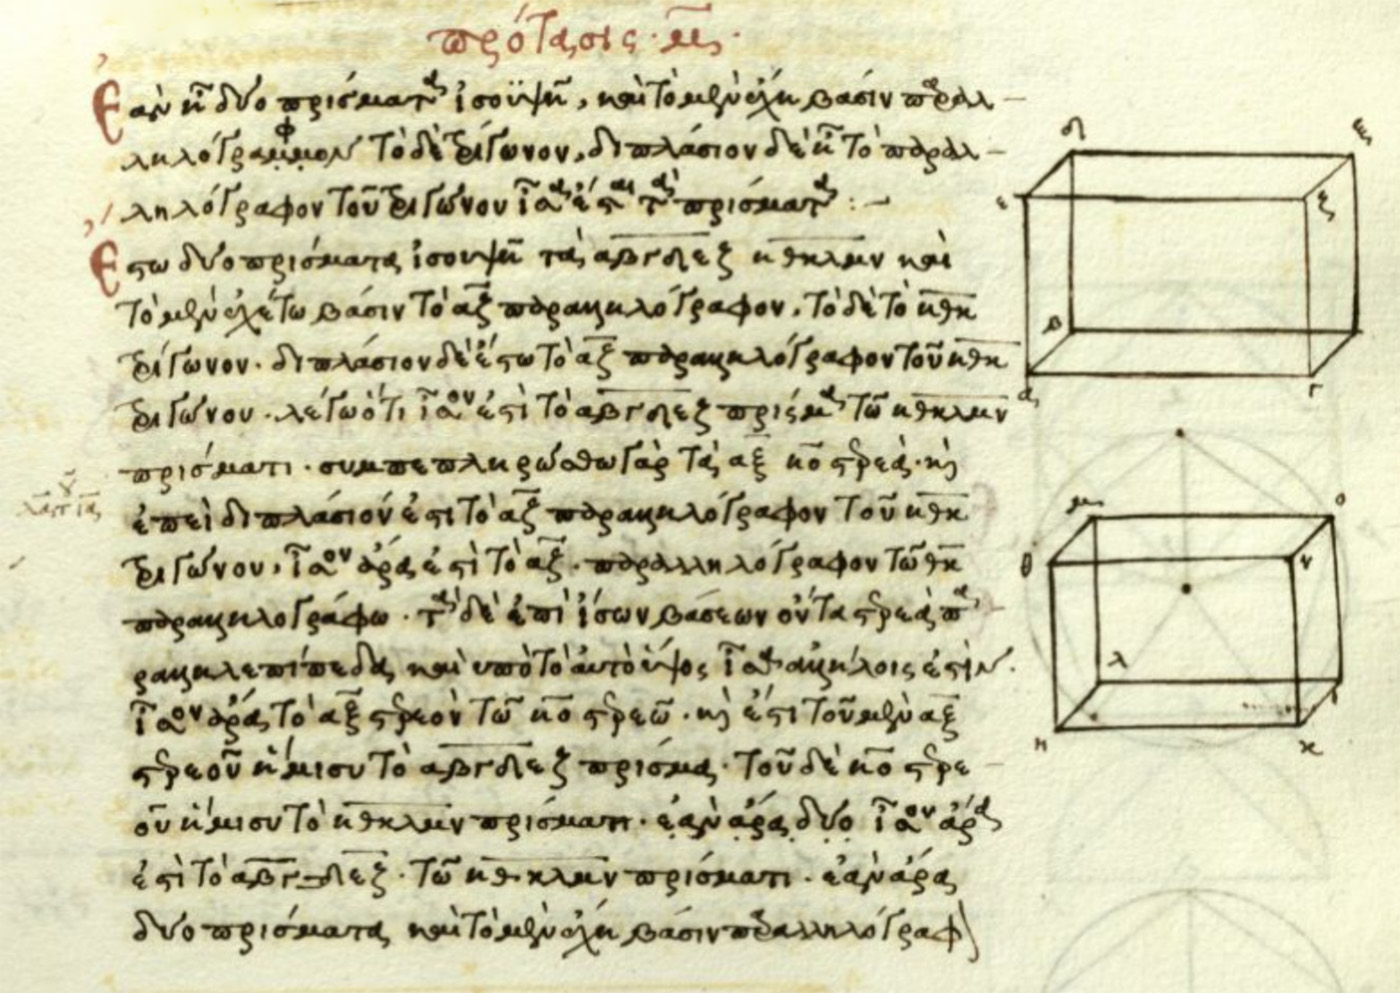 πρότασις μ
Ἐὰν ᾖ δύο πρίσματα ἰσοϋψῆ, καὶ τὸ μὲν ἔχῃ βάσιν παραλ
ληλόγραμμον τὸ δὲ τρίγωνον, διπλάσιον δὲ ᾖ τὸ παραλ
ληλόγραφον τοῦ τριγώνου ἴσα ἐςαι τὰ πρίσματα :
Ἔςω δύο πρίσματα ἰσοϋψῆ τὰ αβγδεζ ηθκλμν καὶ
τὸ μὲν ἐχέτω βάσιν τὸ αζ παραλληλόγραφον, τὸ δὲ τὸ ηθκ
τρίγωνον· διπλάσιον δὲ ἔςω τὸ αζ παραλληλόγραφον τοῦ ηθκ
τριγώνου· λέγω ὅτι ἴσον ἐςὶ τὸ αβγδεζ πρίσμα τῶ ηθκλμν
πρίσματι· συμπεπληρώσθω γὰρ τὰ αξ ηο ςερεά· καὶ
ἐπεὶ διπλάσιόν ἐςι τὸ αζ παραλληλόγραφον τοῦ ηθκ
τριγώνου, ἴσον ἄρα ἐςὶ τὸ αζ παραλληλόγραφον τῶ θκ
παραλληλογράφω· τὰ δὲ ἐπὶ ἴσων βάσεων ὄντα ςερεὰ πα
ραλληλεπίπεδα καὶ ὑπὸ τὸ αὐτὸ ὕψος ἴσα ἀλλήλοις ἐςίν·
ἴσον ἄρα τὸ αξ ςερεὸν τῶ ηο ςερεῶ· καὶ ἔςι τοῦ μὲν αξ
ςερεοῦ ἥμισυ τὸ αβγδεζ πρίσμα· τοῦ δὲ ηο ςερε
οῦ ἥμισυ τὸ ηθκλμν πρίσματι· ἐὰν ἄρα δύο ἴσον ἄρα
ἐςὶ τὸ αβγδεζ· τῶ ηθκλμν πρίσματι· ἐὰν ἄρα
δύο πρίσματα καὶ τὸ μὲν ἔχῃ βάσιν παραλληλόγραφ
δ
ε
ζ
β
α
γ
μ
ο
θ
ν
λ
η
κ